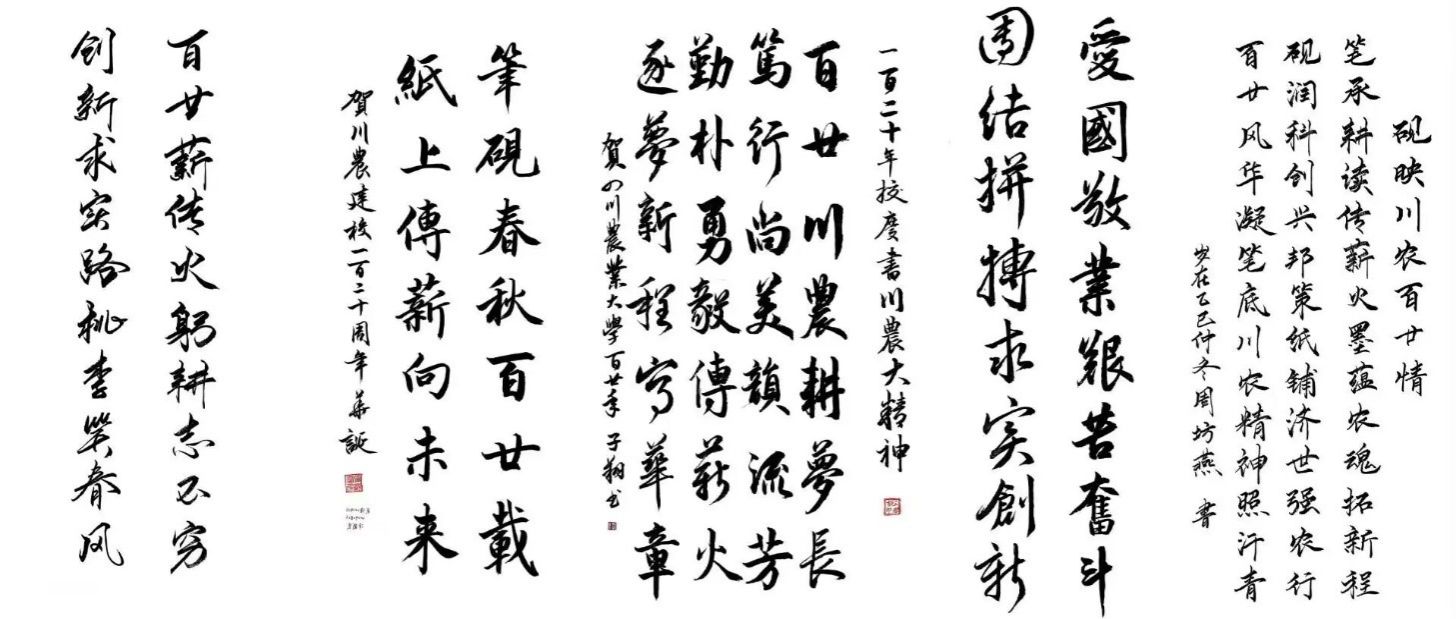 砚映川农百廿情
笔承耕读传薪火墨蕴农魂拓新程
砚润科创兴邦策纸铺济世强农行
百廿风华凝笔底川农精神照汗青
岁在乙巳仲冬周坊燕 书
愛國敬業艱苦奮斗
團结拼搏求实創新
一百二十年校慶書川農大精神
百廿川農耕夢長
篤行尚美韻流芳
勤朴勇毅傳薪火
逐夢新程写華章
賀四川農業大學百廿年 子翔书
筆硯春秋百廿載
紙上傳薪向未来
賀川農建校一百二十周年華誕
百廿薪传火躬耕志不穷
创新求实路桃李笑春风